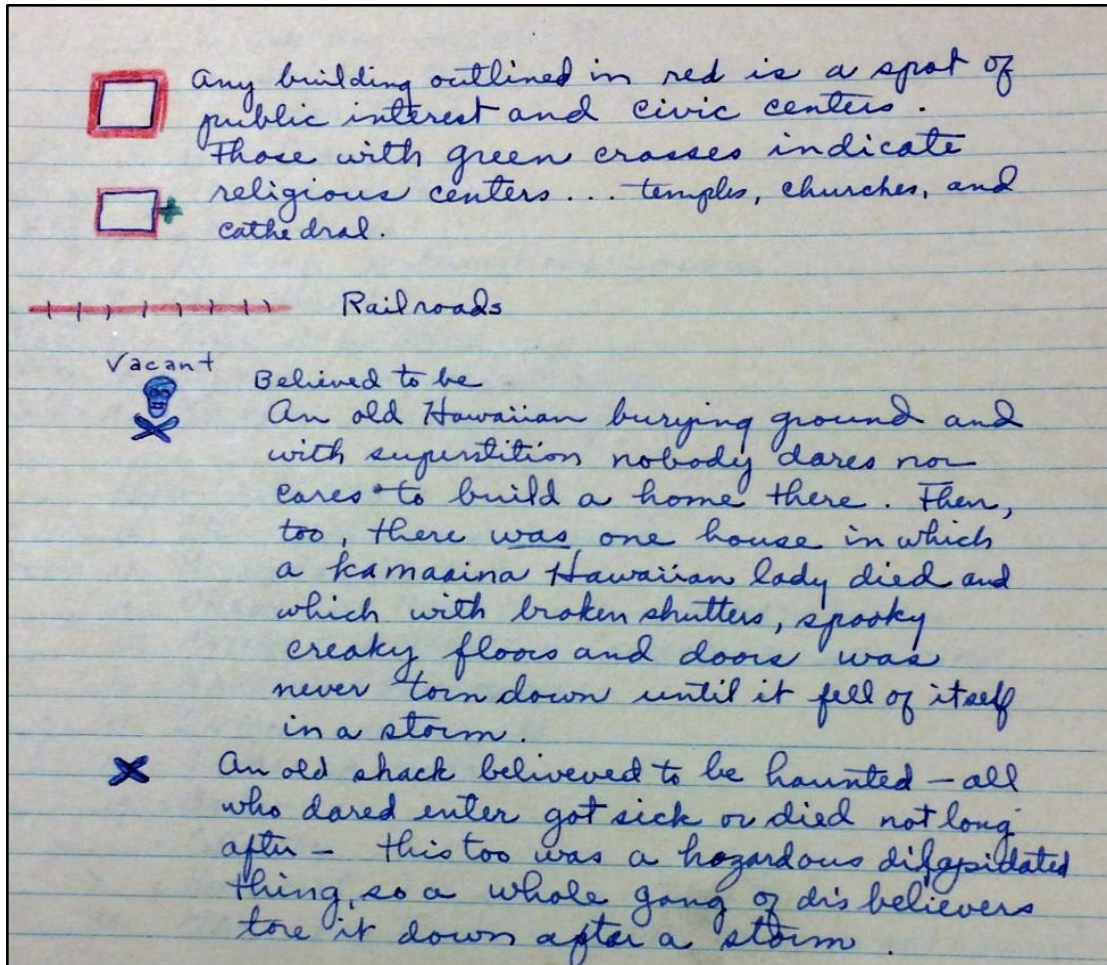 Any building outlined in red is a spot of
public interest and civic centers.
Those with green crosses indicate
religious centers... temples, churches, and
cathedral.
Railroads
Vacant
Believed to be
An old Hawaiian burying ground and
with superstition nobody dares nor
cares to build a home there. Then,
too, there was one house in which
a kamaaina Hawaiian lady died and
which with broken shutters, spooky
creaky floors and doors was
never torn down until it fell of itself
in a storm.
An old shack beliveved to be haunted – all
who dared enter got sick or died not long
after – this too was a hazardous dilapidated
thing, so a whole gang of disbelievers
tore it down after a storm.